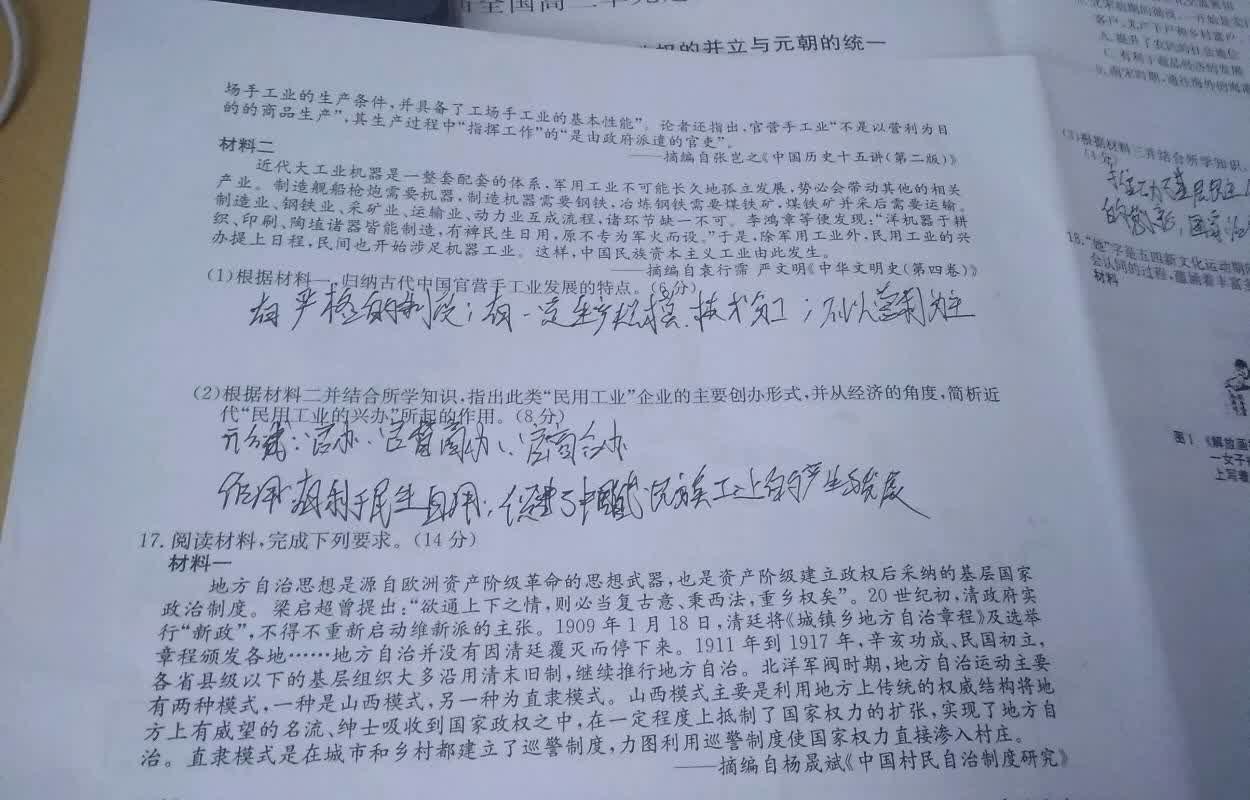 权的并立与元朝的统一
场手工业的生产条件,并具备了工场手工业的基本性能”。论者还指出,官营手工业“不是以营利为目
的的商品生产”,其生产过程中“指挥工作”的“是由政府派遣的官吏”。
——摘编自张岂之《中国历史十五讲(第二版)》
材料二
近代大工业机器是一整套配套的体系,军用工业不可能长久地孤立发展,势必会带动其他的相关
产业。制造舰船枪炮需要机器,制造机器需要钢铁,冶炼钢铁需要煤铁矿,煤铁矿并采后需要运输。
制造业、钢铁业、采矿业、运输业、动力业互成流程,诸环节缺一不可。李鸿章等便发现:“洋机器于耕
织、印刷、陶埴诸器皆能制造,有裨民生日用,原不专为军火而设。”于是,除军用工业外,民用工业的兴
办提上日程,民间也开始涉足机器工业。这样,中国民族资本主义工业由此发生。
——摘编自袁行霈 严文明《中华文明史(第四卷)》
(1)根据材料一,归纳古代中国官营手工业发展的特点。(6分)
有严格的制度;有一定生产规模、技术分工;不以营利为主
(2)根据材料二并结合所学知识,指出此类“民用工业”企业的主要创办形式,并从经济的角度,简析近
代“民用工业的兴办”所起的作用。(8分)
形式:官办、官督商办、官商合办
作用:有利于民生日用;促进了中国民族工业的产生与发展
17. 阅读材料,完成下列要求。(14分)
材料一
地方自治思想是源自欧洲资产阶级革命的思想武器,也是资产阶级建立政权后采纳的基层国家
政治制度。梁启超曾提出:“欲通上下之情,则必当复古意、秉西法,重乡权矣”。20世纪初,清政府实
行“新政”,不得不重新启动维新派的主张。1909年1月18日,清廷将《城镇乡地方自治章程》及选举
章程颁发各地……地方自治并没有因清廷覆灭而停下来。1911年到1917年,辛亥功成、民国初立,
各省县级以下的基层组织大多沿用清末旧制,继续推行地方自治。北洋军阀时期,地方自治运动主要
有两种模式,一种是山西模式,另一种为直隶模式。山西模式主要是利用地方上传统的权威结构将地
方上有威望的名流、绅士吸收到国家政权之中,在一定程度上抵制了国家权力的扩张,实现了地方自
治。直隶模式是在城市和乡村都建立了巡警制度,力图利用巡警制度使国家权力直接渗入村庄。
——摘编自杨晟斌《中国村民自治制度研究》
(3)根据材料三并结合所学知识,
(4分)
18. “她”字是五四新文化运动期
会认同的过程,蕴涵着丰富
材料
图1 《解放画
一女子
上写着